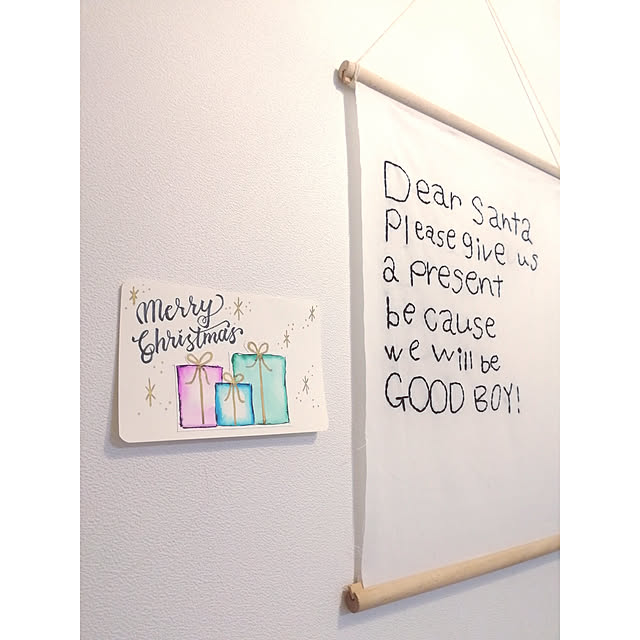 Merry
Christmas
Dear Santa
Please give us
a present
be cause
we will be
GOOD BOY!